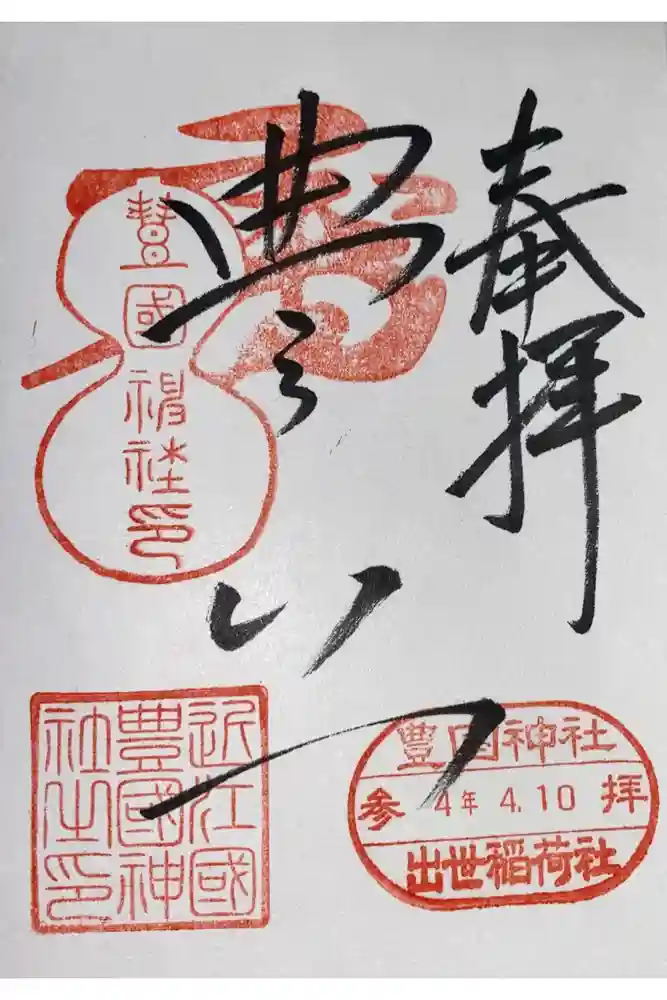 奉拝
豊國神社印
近江國
豊國神
社之印
豊国神社
参 4年 4.10 拝
出世稲荷社